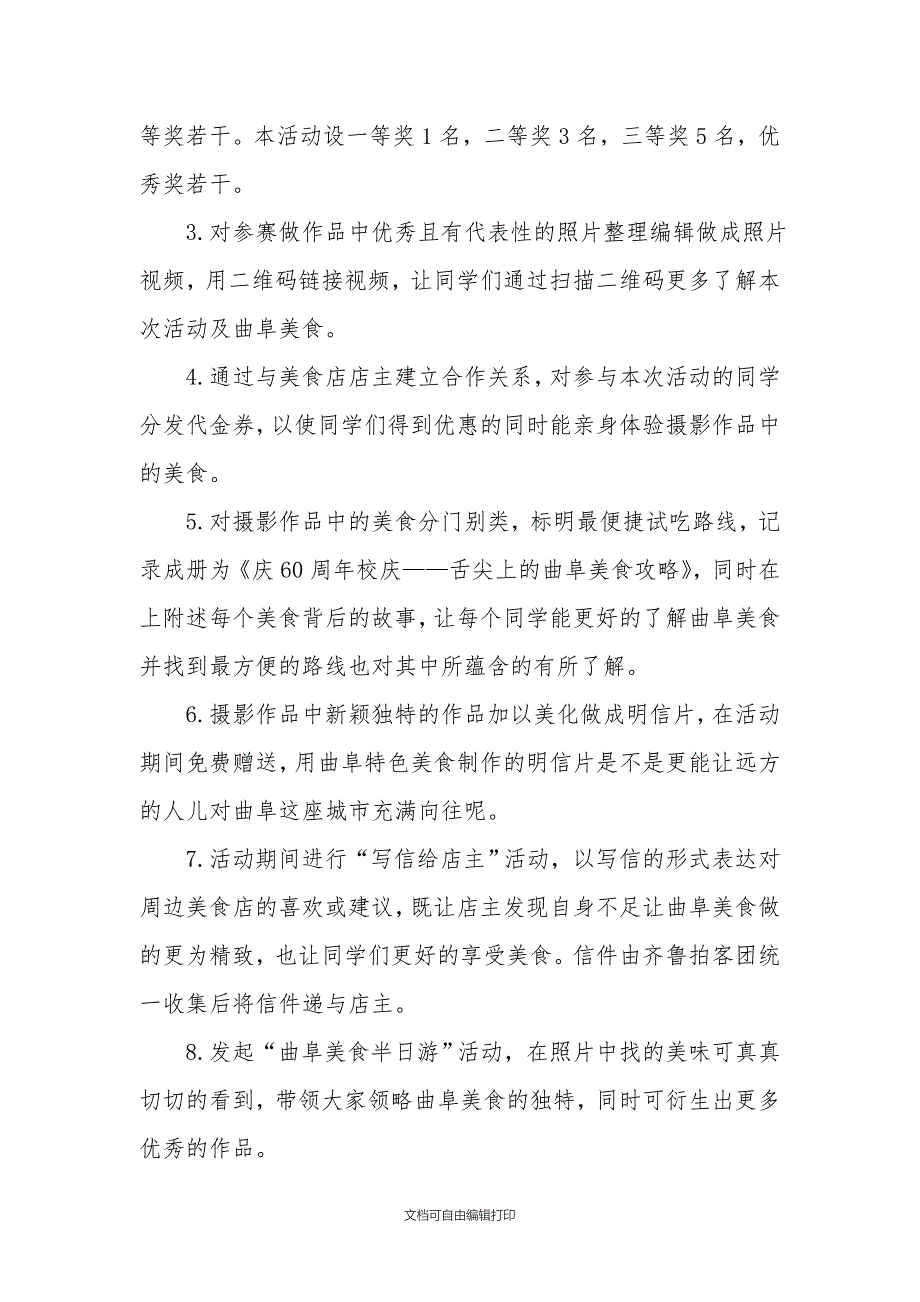 等奖若干。本活动设一等奖1名，二等奖3名，三等奖5名，优
秀奖若干。
3.对参赛做作品中优秀且有代表性的照片整理编辑做成照片
视频，用二维码链接视频，让同学们通过扫描二维码更多了解本
次活动及曲阜美食。
4.通过与美食店店主建立合作关系，对参与本次活动的同学
分发代金券，以使同学们得到优惠的同时能亲身体验摄影作品中
的美食。
5.对摄影作品中的美食分门别类，标明最便捷试吃路线，记
录成册为《庆60周年校庆——舌尖上的曲阜美食攻略》，同时在
上附述每个美食背后的故事，让每个同学能更好的了解曲阜美食
并找到最方便的路线也对其中所蕴含的有所了解。
6.摄影作品中新颖独特的作品加以美化做成明信片，在活动
期间免费赠送，用曲阜特色美食制作的明信片是不是更能让远方
的人儿对曲阜这座城市充满向往呢。
7.活动期间进行“写信给店主”活动，以写信的形式表达对
周边美食店的喜欢或建议，既让店主发现自身不足让曲阜美食做
的更为精致，也让同学们更好的享受美食。信件由齐鲁拍客团统
一收集后将信件递与店主。
8.发起“曲阜美食半日游”活动，在照片中找的美味可真真
切切的看到，带领大家领略曲阜美食的独特，同时可衍生出更多
优秀的作品。
文档可自由编辑打印